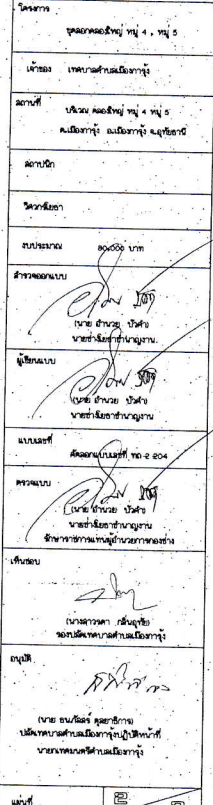 โครงการ
ขุดลอกคลองใหญ่ หมู่ 4 , หมู่ 5
เจ้าของ เทศบาลตำบลเมืองการุ้ง
สถานที่
บริเวณ คลองใหญ่ หมู่ 4 หมู่ 5
ต.เมืองการุ้ง อ.เมืองการุ้ง จ.อุทัยธานี
สถาปนิก
วิศวกรโยธา
งบประมาณ 80,000 บาท
สำรวจออกแบบ
(นาย อำนวย บัวคำ)
นายช่างโยธาชำนาญงาน
ผู้เขียนแบบ
(นาย อำนวย บัวคำ)
นายช่างโยธาชำนาญงาน
แบบเลขที่
คัดลอกแบบเลขที่ ทถ-2-204
ตรวจแบบ
(นาย อำนวย บัวคำ)
นายช่างโยธาชำนาญงาน
รักษาราชการแทนผู้อำนวยการกองช่าง
เห็นชอบ
(นางสาวรดา กลิ่นอุทัย)
รองปลัดเทศบาลตำบลเมืองการุ้ง
อนุมัติ
ปลัดเทศบาลตำบลเมืองการุ้งปฏิบัติหน้าที่
นายกเทศมนตรีตำบลเมืองการุ้ง
แผ่นที่